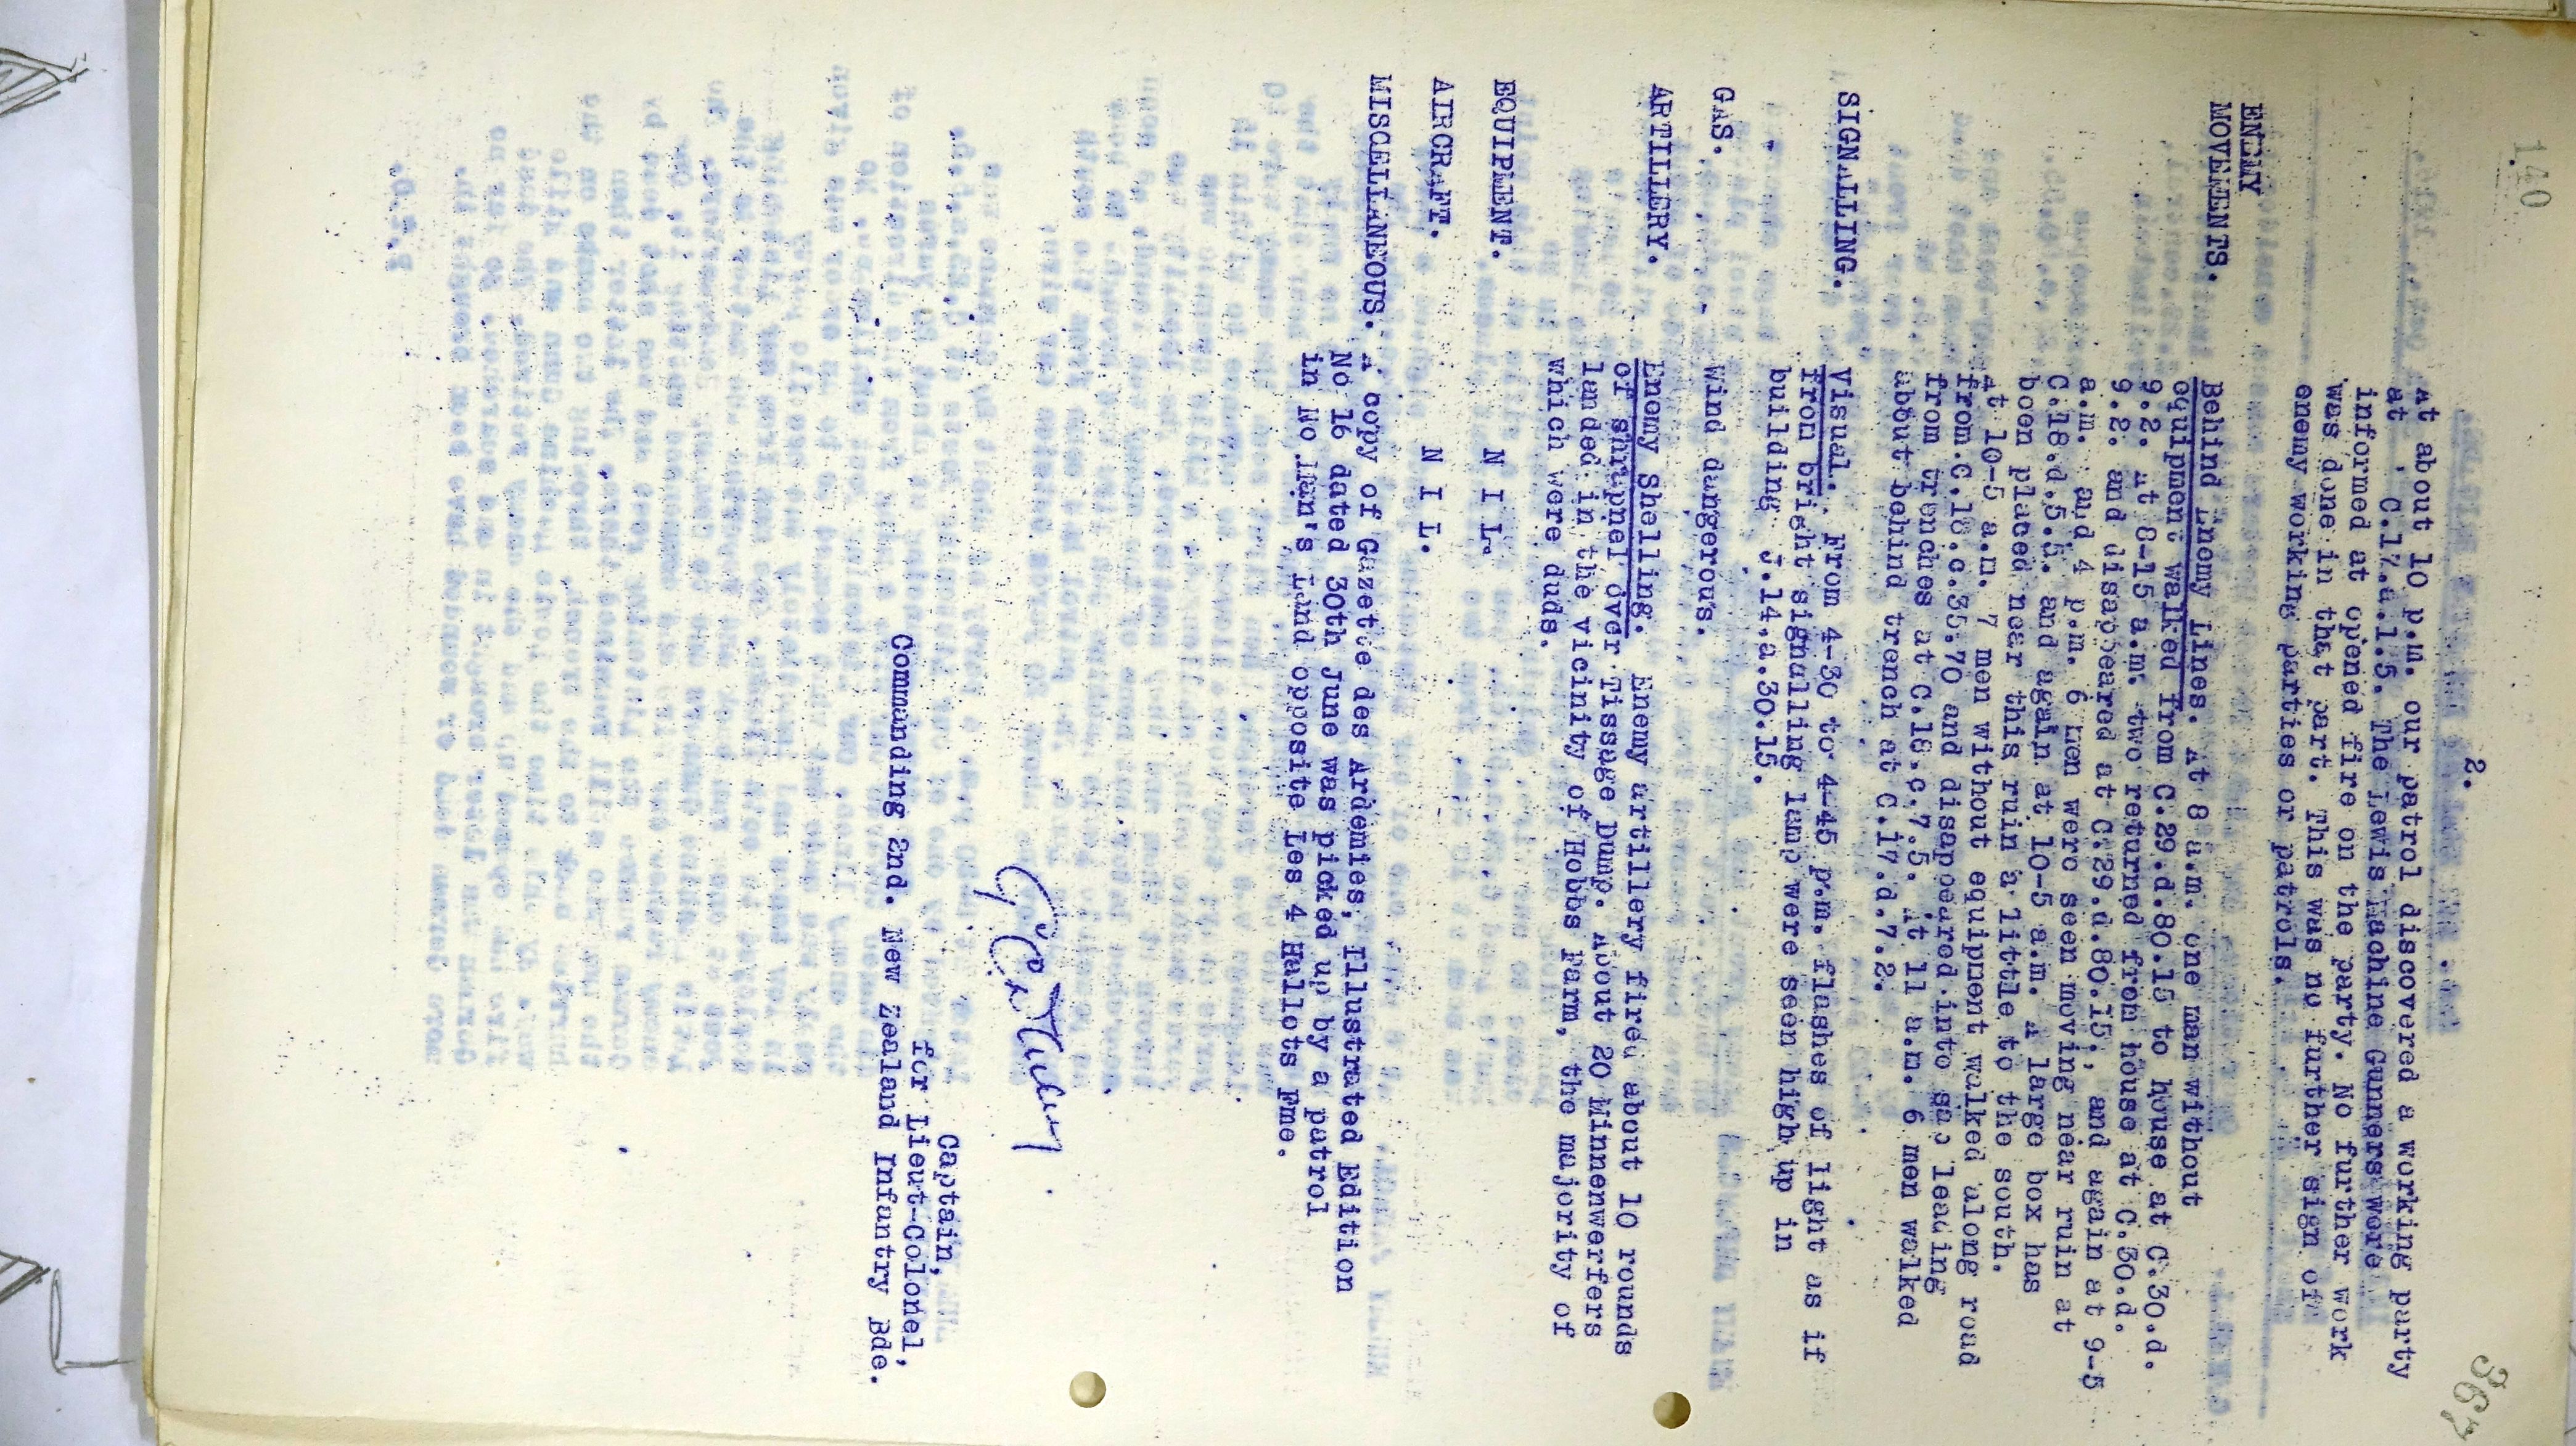 140
367
2.
At about 10 p.m. our patrol discovered a working party
at C.17.a.1.5. The Lewis Machine Gunners were
informed at opened fire on the party. No further work
was done in that part. This was no further sign of
enemy working parties or patrols.
ENEMY
MOVEMENTS.
Behind Enemy Lines. At 8 a.m. one man without
equipment walked from C.29.d.80.15 to house at C.30.d.
9.2. At 8-15 a.m. two returned from house at C.30.d.
9.2. and disappeared at C.29.d.80.15., and again at 9-5
a.m. and 4 p.m. 6 men were seen moving near ruin at
C.18.d.5.5. and again at 10-5 a.m. A large box has
been placed near this ruin a little to the south.
At 10-5 a.m. 7 men without equipment walked along road
from C.18.c.35.70 and disappeared into sap leading
from trenches at C.18.c.7.5. At 11 a.m. 6 men walked
about behind trench at C.17.d.7.2.
SIGNALLING. Visual. From 4-30 to 4-45 p.m. flashes of light as if
from bright signalling lamp were seen high up in
building J.14.a.30.15.
GAS. Wind dangerous.
ARTILLERY. Enemy Shelling. Enemy artillery fired about 10 rounds
of shrapnel over Tissage Dump. About 20 Minnenwerfers
landed in the vicinity of Hobbs Farm, the majority of
which were duds.
EQUIPMENT. N I L.
AIRCRAFT. N I L.
MISCELLANEOUS. A copy of Gazette des Ardennies, Illustrated Edition
No 16 dated 30th June was picked up by a patrol
in No Man's Land opposite Les 4 Hallots Fme.
Captain,
for Lieut-Colonel,
Commanding 2nd. New Zealand Infantry Bde.